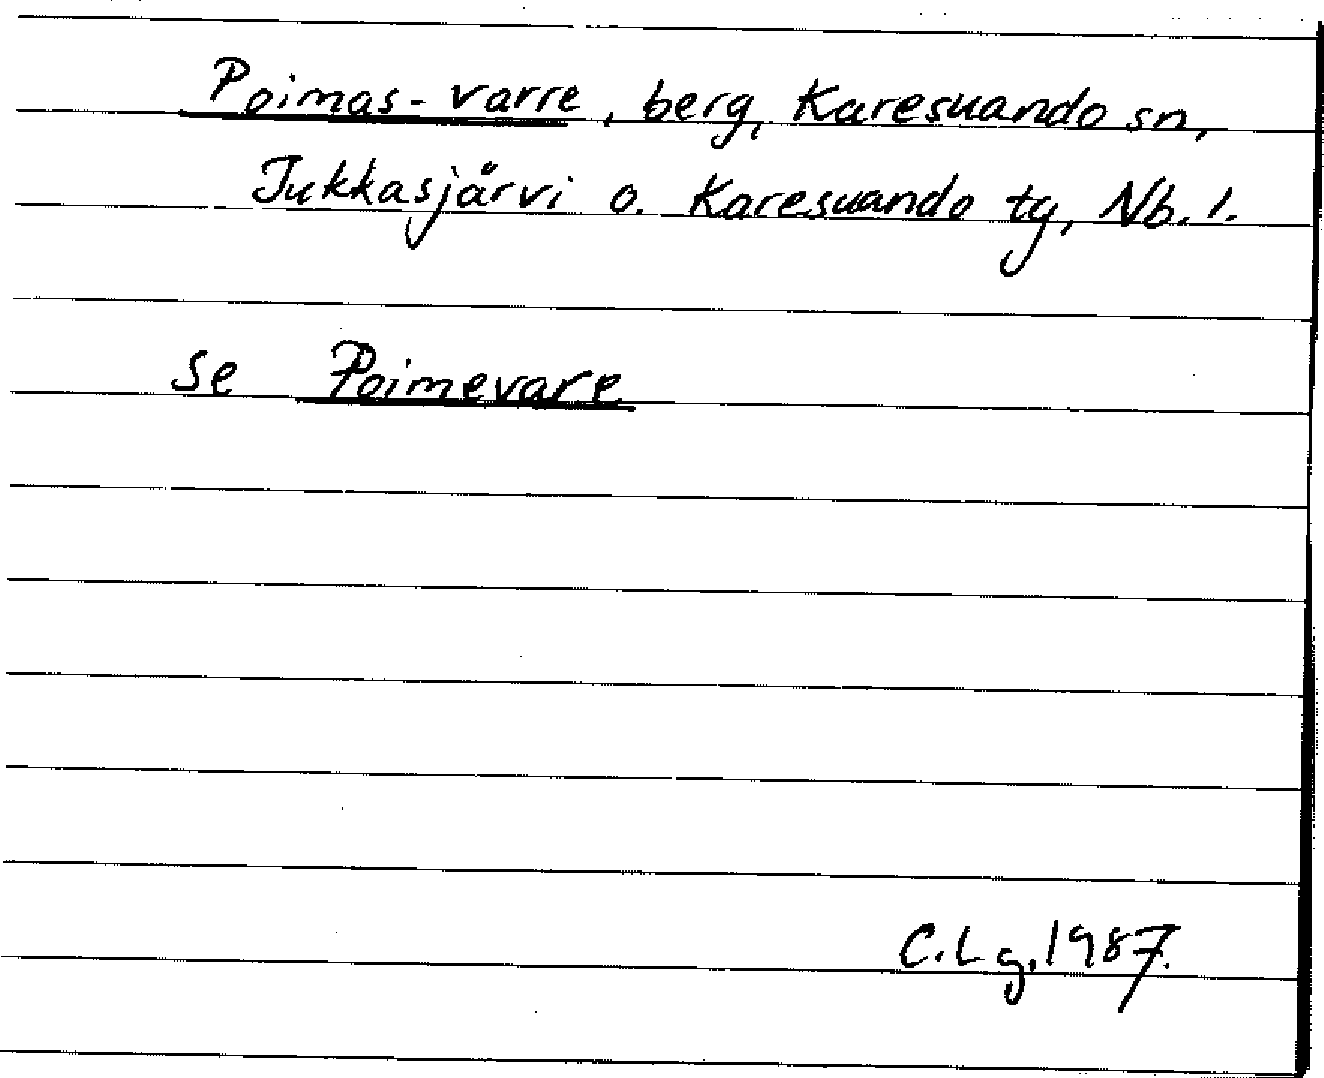 Poimas-varre, berg, Karesuando sn,
Jukkasjärvi o. Karesuando tg, Nb. l.
se Poimevare
C.Lg.1987.